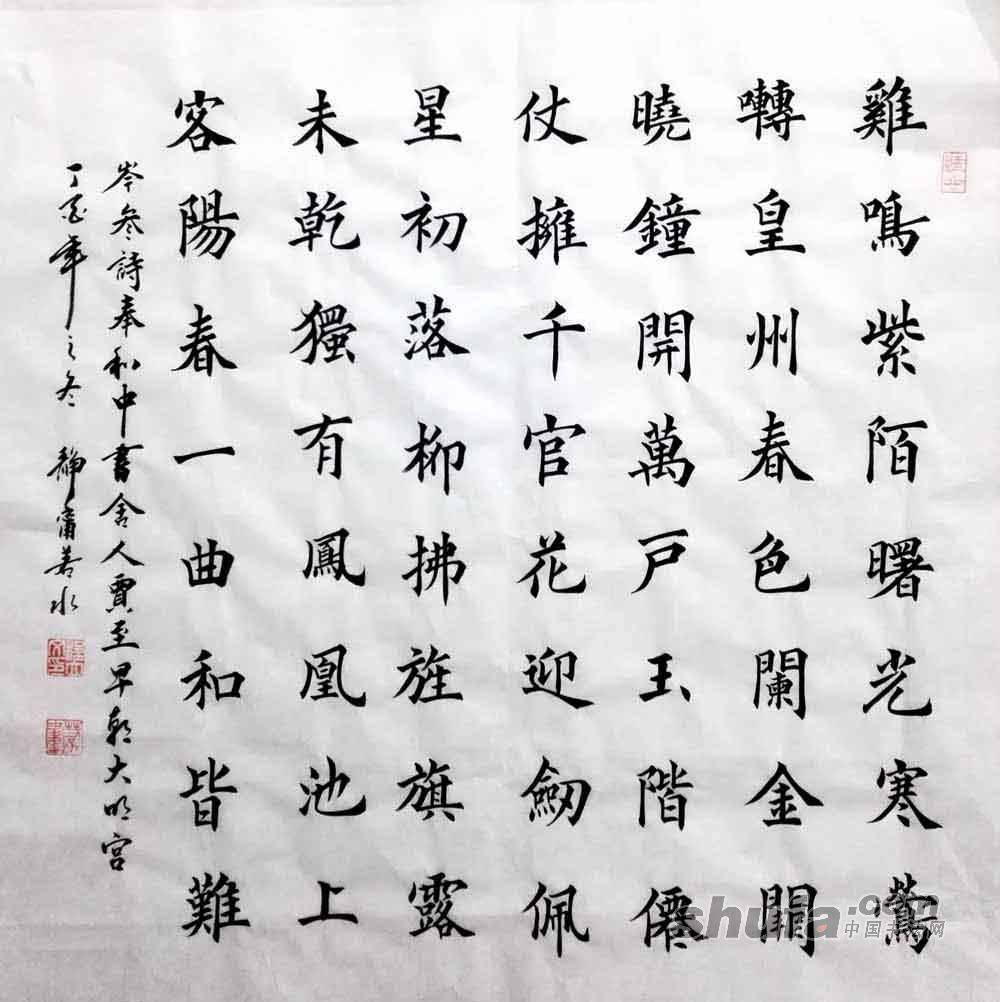 雞鳴紫陌曙光寒鶯
囀皇州春色闌金闕
曉鐘開萬戶玉階僊
仗擁千官花迎劒佩
星初落柳拂旌旗露
未乾獨有鳳凰池上
客陽春一曲和皆難
岑參詩奉和中書舍人賈至早朝大明宮
丁酉年之冬 靜齋善水
中国书法网